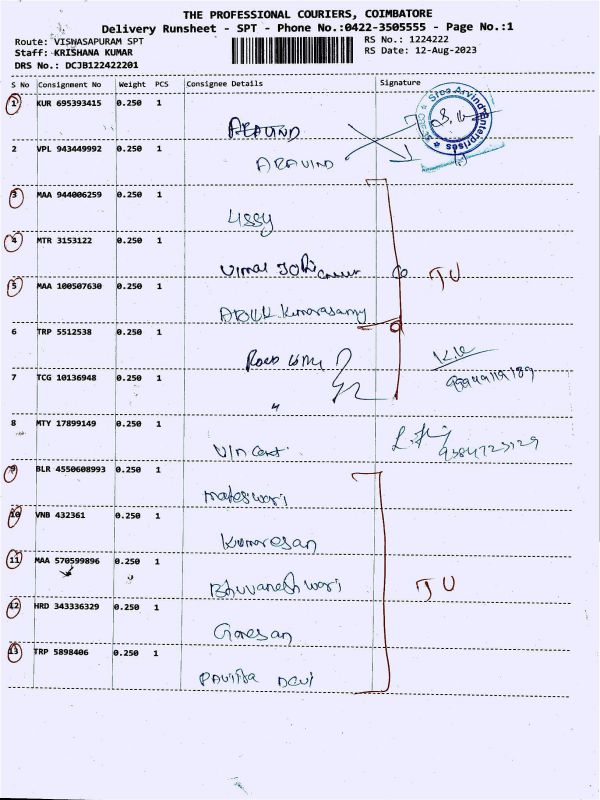 THE PROFESSIONAL COURIERS, COIMBATORE
Delivery Runsheet - SPT - Phone No.:0422-3505555 - Page No.:1
Route: VISWASAPURAM SPT
RS No.: 1224222
Staff: KRISHANA KUMAR
RS Date: 12-Aug-2023
DRS No.: DCJB122422201
S No Consignment No Weight PCS Consignee Details Signature
1 KUR 695393415 0.250 1
ARAVIND
Sree Arvind Enterprises
2 VPL 943449992 0.250 1
ARAVIND
3 MAA 944006259 0.250 1
4 MTR 3153122 0.250 1
Vimal
TU
5 MAA 100507630 0.250 1
Kumarasamy
6 TRP 5512538 0.250 1
7 TCG 10136948 0.250 1
"
8 MTY 17899149 0.250 1
Vincent
9 BLR 4550608993 0.250 1
mateswari
10 VNB 432361 0.250 1
Kumaresan
11 MAA 570599896 0.250 1
Bhuvaneshwari
TU
12 HRD 343336329 0.250 1
13 TRP 5898406 0.250 1
Devi